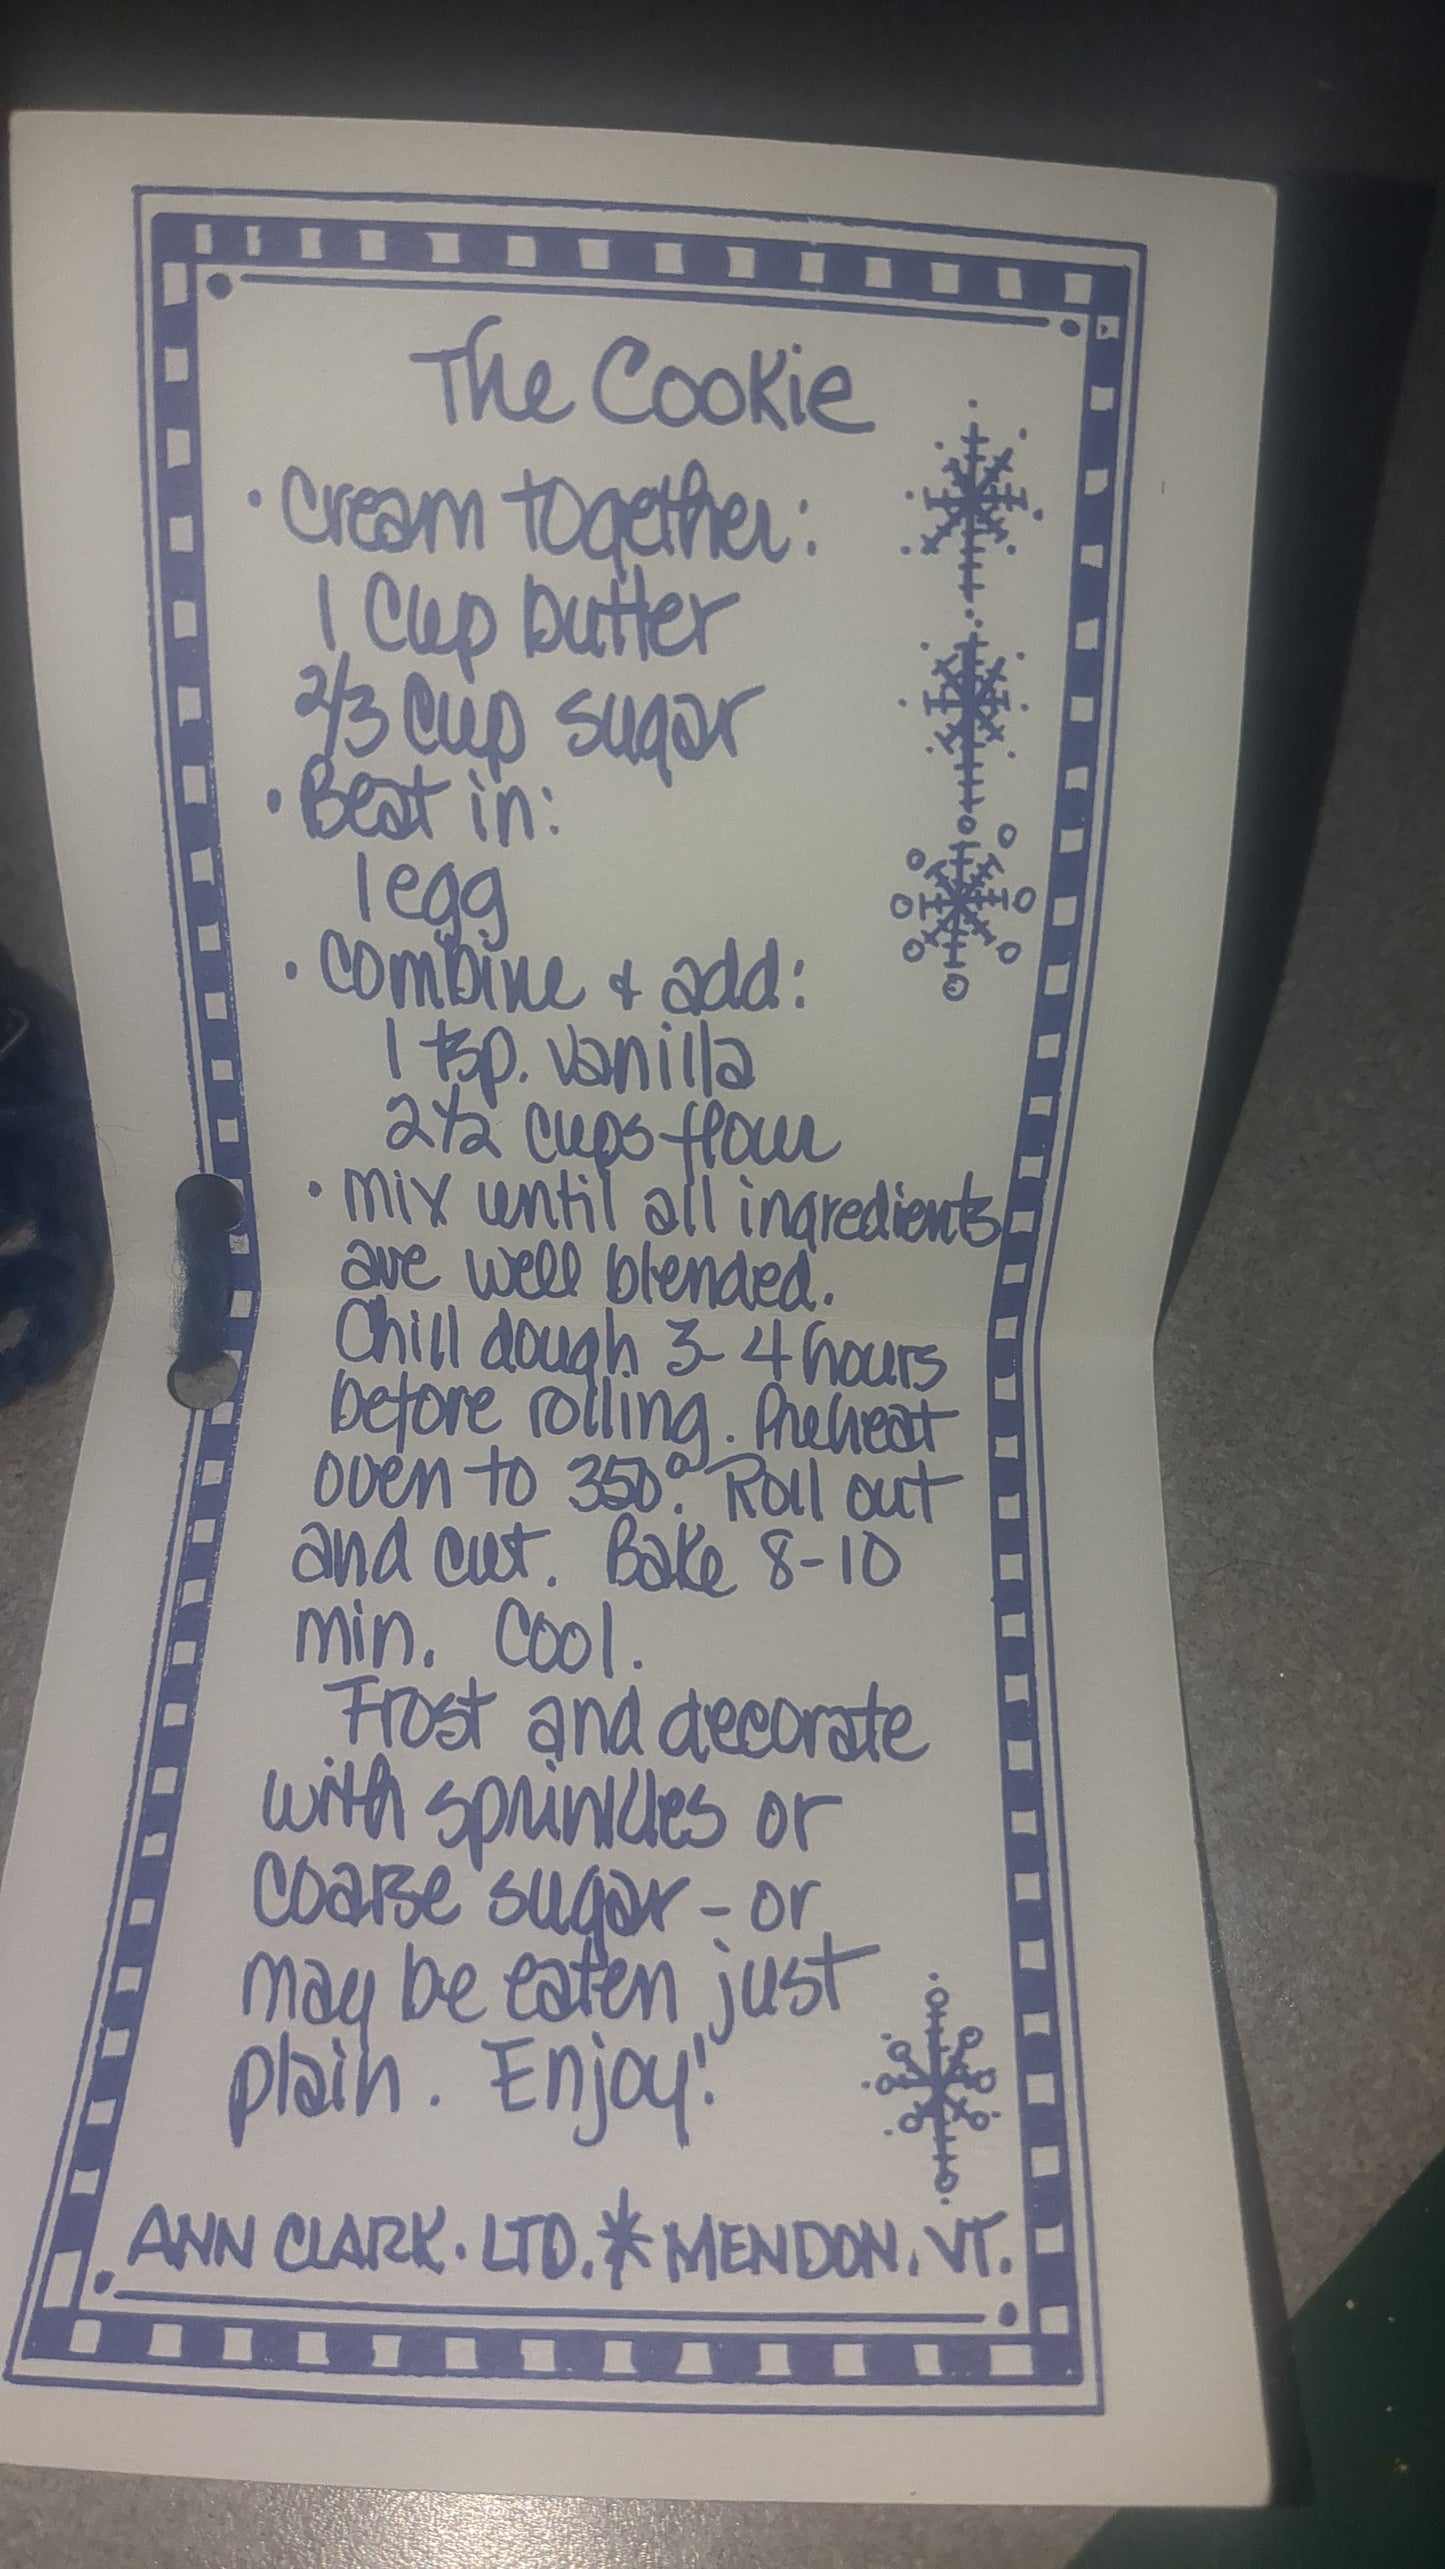 The Cookie
• Cream together:
1 Cup butter
2/3 Cup sugar
• Beat in:
1 egg
• Combine + add:
1 tsp. vanilla
2 1/2 cups flour
• mix until all ingredients
are well blended.
Chill dough 3-4 hours
before rolling. Preheat
oven to 350°. Roll out
and cut. Bake 8-10
min. Cool.
Frost and decorate
with sprinkles or
coarse sugar - or
may be eaten just
plain. Enjoy!
ANN CLARK. LTD. * MENDON. VT.